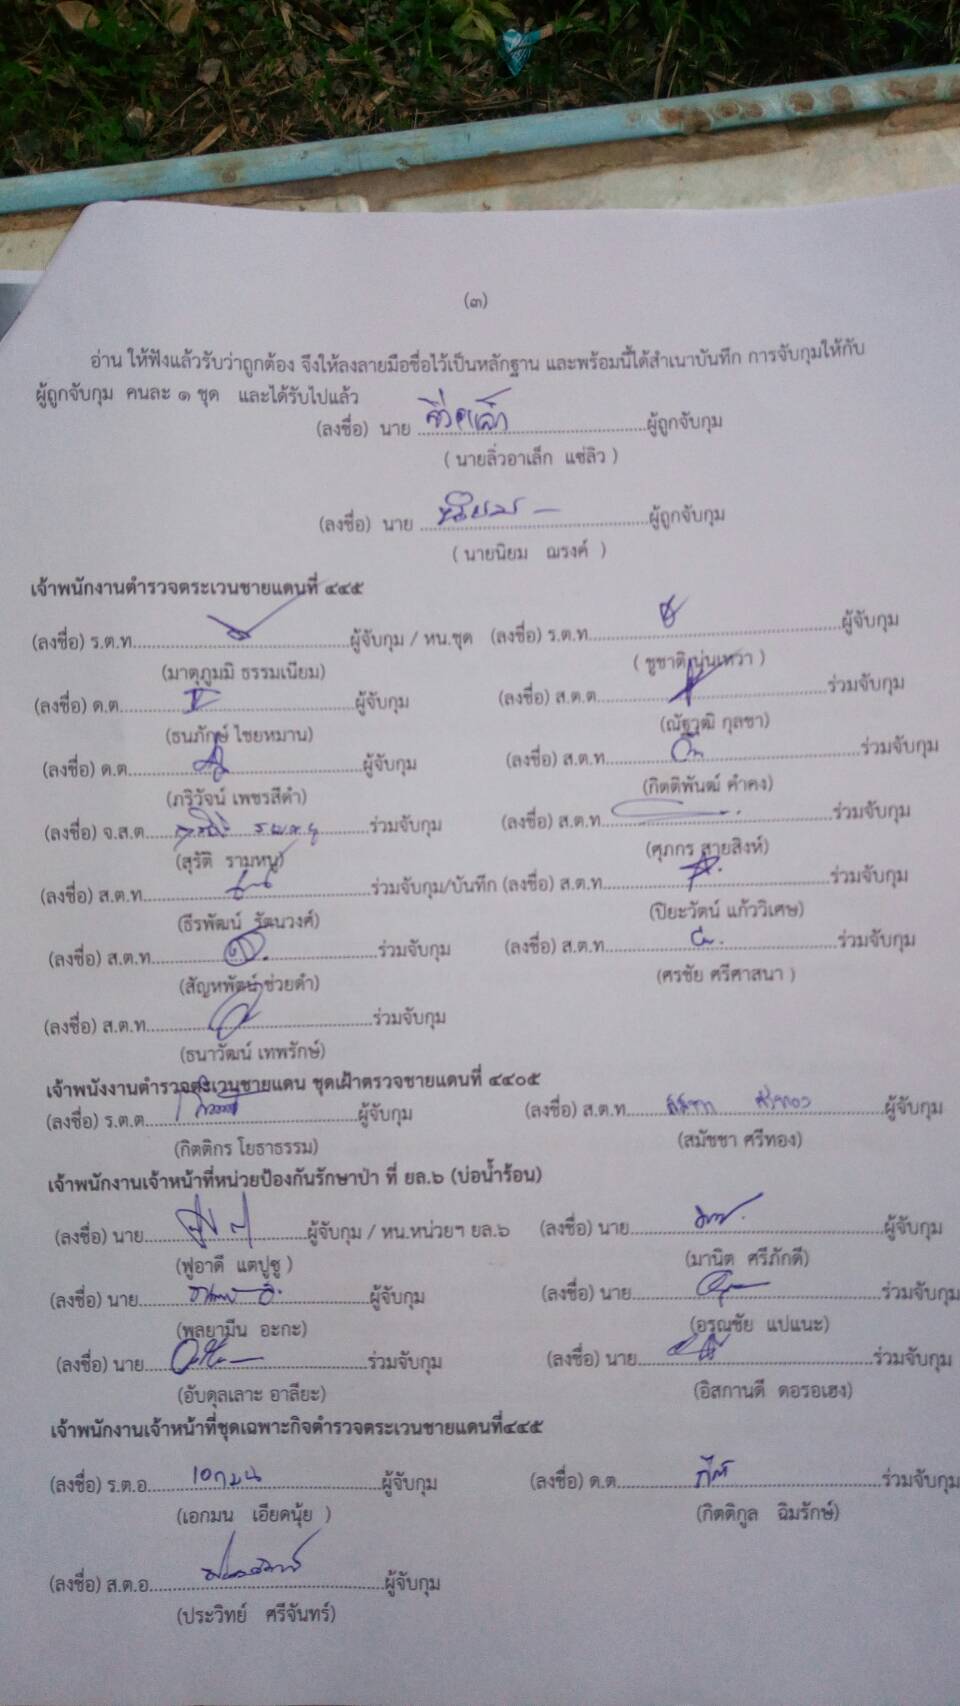 (๓)
อ่าน ให้ฟังแล้วรับว่าถูกต้อง จึงให้ลงลายมือชื่อไว้เป็นหลักฐาน และพร้อมนี้ได้สำเนาบันทึก การจับกุมให้กับ
ผู้ถูกจับกุม คนละ ๑ ชุด และได้รับไปแล้ว
(ลงชื่อ) นาย ........................................ผู้ถูกจับกุม
( นายลิ่วอาเล็ก แซ่ลิว )
(ลงชื่อ) นาย ........................................ผู้ถูกจับกุม
( นายนิยม ฌรงค์ )
เจ้าพนักงานตำรวจตระเวนชายแดนที่ ๔๔๕
(ลงชื่อ) ร.ต.ท........................................ผู้จับกุม / หน.ชุด (ลงชื่อ) ร.ต.ท........................................ผู้จับกุม
(มาตุภูมมิ ธรรมเนียม) ( ชูชาติ นุ่นเหวา )
(ลงชื่อ) ด.ต........................................ผู้จับกุม (ลงชื่อ) ส.ต.ต........................................ร่วมจับกุม
(ธนภักษ์ ไชยหมาน) (ณัฐวุฒิ กุลชา)
(ลงชื่อ) ด.ต........................................ผู้จับกุม (ลงชื่อ) ส.ต.ท........................................ร่วมจับกุม
(ภริวัจน์ เพชรสีดำ) (กิตติพันฒ์ คำคง)
(ลงชื่อ) จ.ส.ต........................................ร่วมจับกุม (ลงชื่อ) ส.ต.ท........................................ร่วมจับกุม
(สุรัติ รามหนู) (ศุภกร สายสิงห์)
(ลงชื่อ) ส.ต.ท........................................ร่วมจับกุม/บันทึก (ลงชื่อ) ส.ต.ท........................................ร่วมจับกุม
(ธีรพัฒน์ รัตนวงศ์) (ปิยะวัตน์ แก้ววิเศษ)
(ลงชื่อ) ส.ต.ท........................................ร่วมจับกุม (ลงชื่อ) ส.ต.ท........................................ร่วมจับกุม
(สัญหพัฒน์ ช่วยดำ) (ศรชัย ศรีศาสนา )
(ลงชื่อ) ส.ต.ท........................................ร่วมจับกุม
(ธนาวัฒน์ เทพรักษ์)
เจ้าพนังงานตำรวจตระเวนชายแดน ชุดเฝ้าตรวจชายแดนที่ ๔๔๐๕
(ลงชื่อ) ร.ต.ต........................................ผู้จับกุม (ลงชื่อ) ส.ต.ท........................................ผู้จับกุม
(กิตติกร โยธาธรรม) (สมัชชา ศรีทอง)
เจ้าพนักงานเจ้าหน้าที่หน่วยป้องกันรักษาป่า ที่ ยล.๖ (บ่อน้ำร้อน)
(ลงชื่อ) นาย........................................ผู้จับกุม / หน.หน่วยฯ ยล.๖ (ลงชื่อ) นาย........................................ผู้จับกุม
(ฟูอาดี แตปูซู ) (มานิต ศรีภักดี)
(ลงชื่อ) นาย........................................ผู้จับกุม (ลงชื่อ) นาย........................................ร่วมจับกุม
(พลยามีน อะกะ) (อรุณชัย แปแนะ)
(ลงชื่อ) นาย........................................ร่วมจับกุม (ลงชื่อ) นาย........................................ร่วมจับกุม
(อับดุลเลาะ อาลียะ) (อิสกานดี ดอรอเฮง)
เจ้าพนักงานเจ้าหน้าที่ชุดเฉพาะกิจตำรวจตระเวนชายแดนที่๔๔๕
(ลงชื่อ) ร.ต.อ. เอกมน ........................................ผู้จับกุม (ลงชื่อ) ด.ต........................................ร่วมจับกุม
(เอกมน เอียดนุ้ย ) (กิตติกูล ฉิมรักษ์)
(ลงชื่อ) ส.ต.อ........................................ผู้จับกุม
(ประวิทย์ ศรีจันทร์)